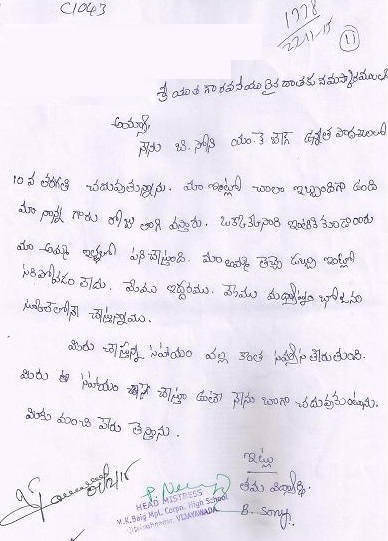 C1043
1778
22-11-15
11
శ్రీ యుత గౌరవనీయులైన దాతకు నమస్కారములు
అయ్యా,
నేను బి. సోని యం.కె బేగ్ ఉన్నత పాఠశాలలో
10 వ తరగతి చదువుతున్నాను. మా ఇంట్లో చాలా ఇబ్బందిగా ఉంది
మా నాన్న గారు రోజు తాగి వస్తారు. ఒక్కొక్కసారి ఇంటికి కూడా రారు
మా అమ్మ ఇళ్ళలో పని చేస్తుంది. మా అమ్మ తెచ్చే డబ్బు ఇంట్లో
సరిపోవడం లేదు. మేము ఇద్దరము. మేము మధ్యాహ్నం భోజనం
స్కూల్లోనే చేస్తున్నాము.
మీరు చేస్తున్న సహాయం వల్ల కొంత సమస్య తీరుతుంది.
మీరు ఈ సహాయం చేస్తూ ఉంటే నేను బాగా చదువుకుంటాను.
మీకు మంచి పేరు తెస్తాను.
ఇట్లు
తమ విద్యార్థి.
B. Sony.
HEAD MISTRESS
M.K.Baig Mpl. Corpn. High School
VIJAYAWADA